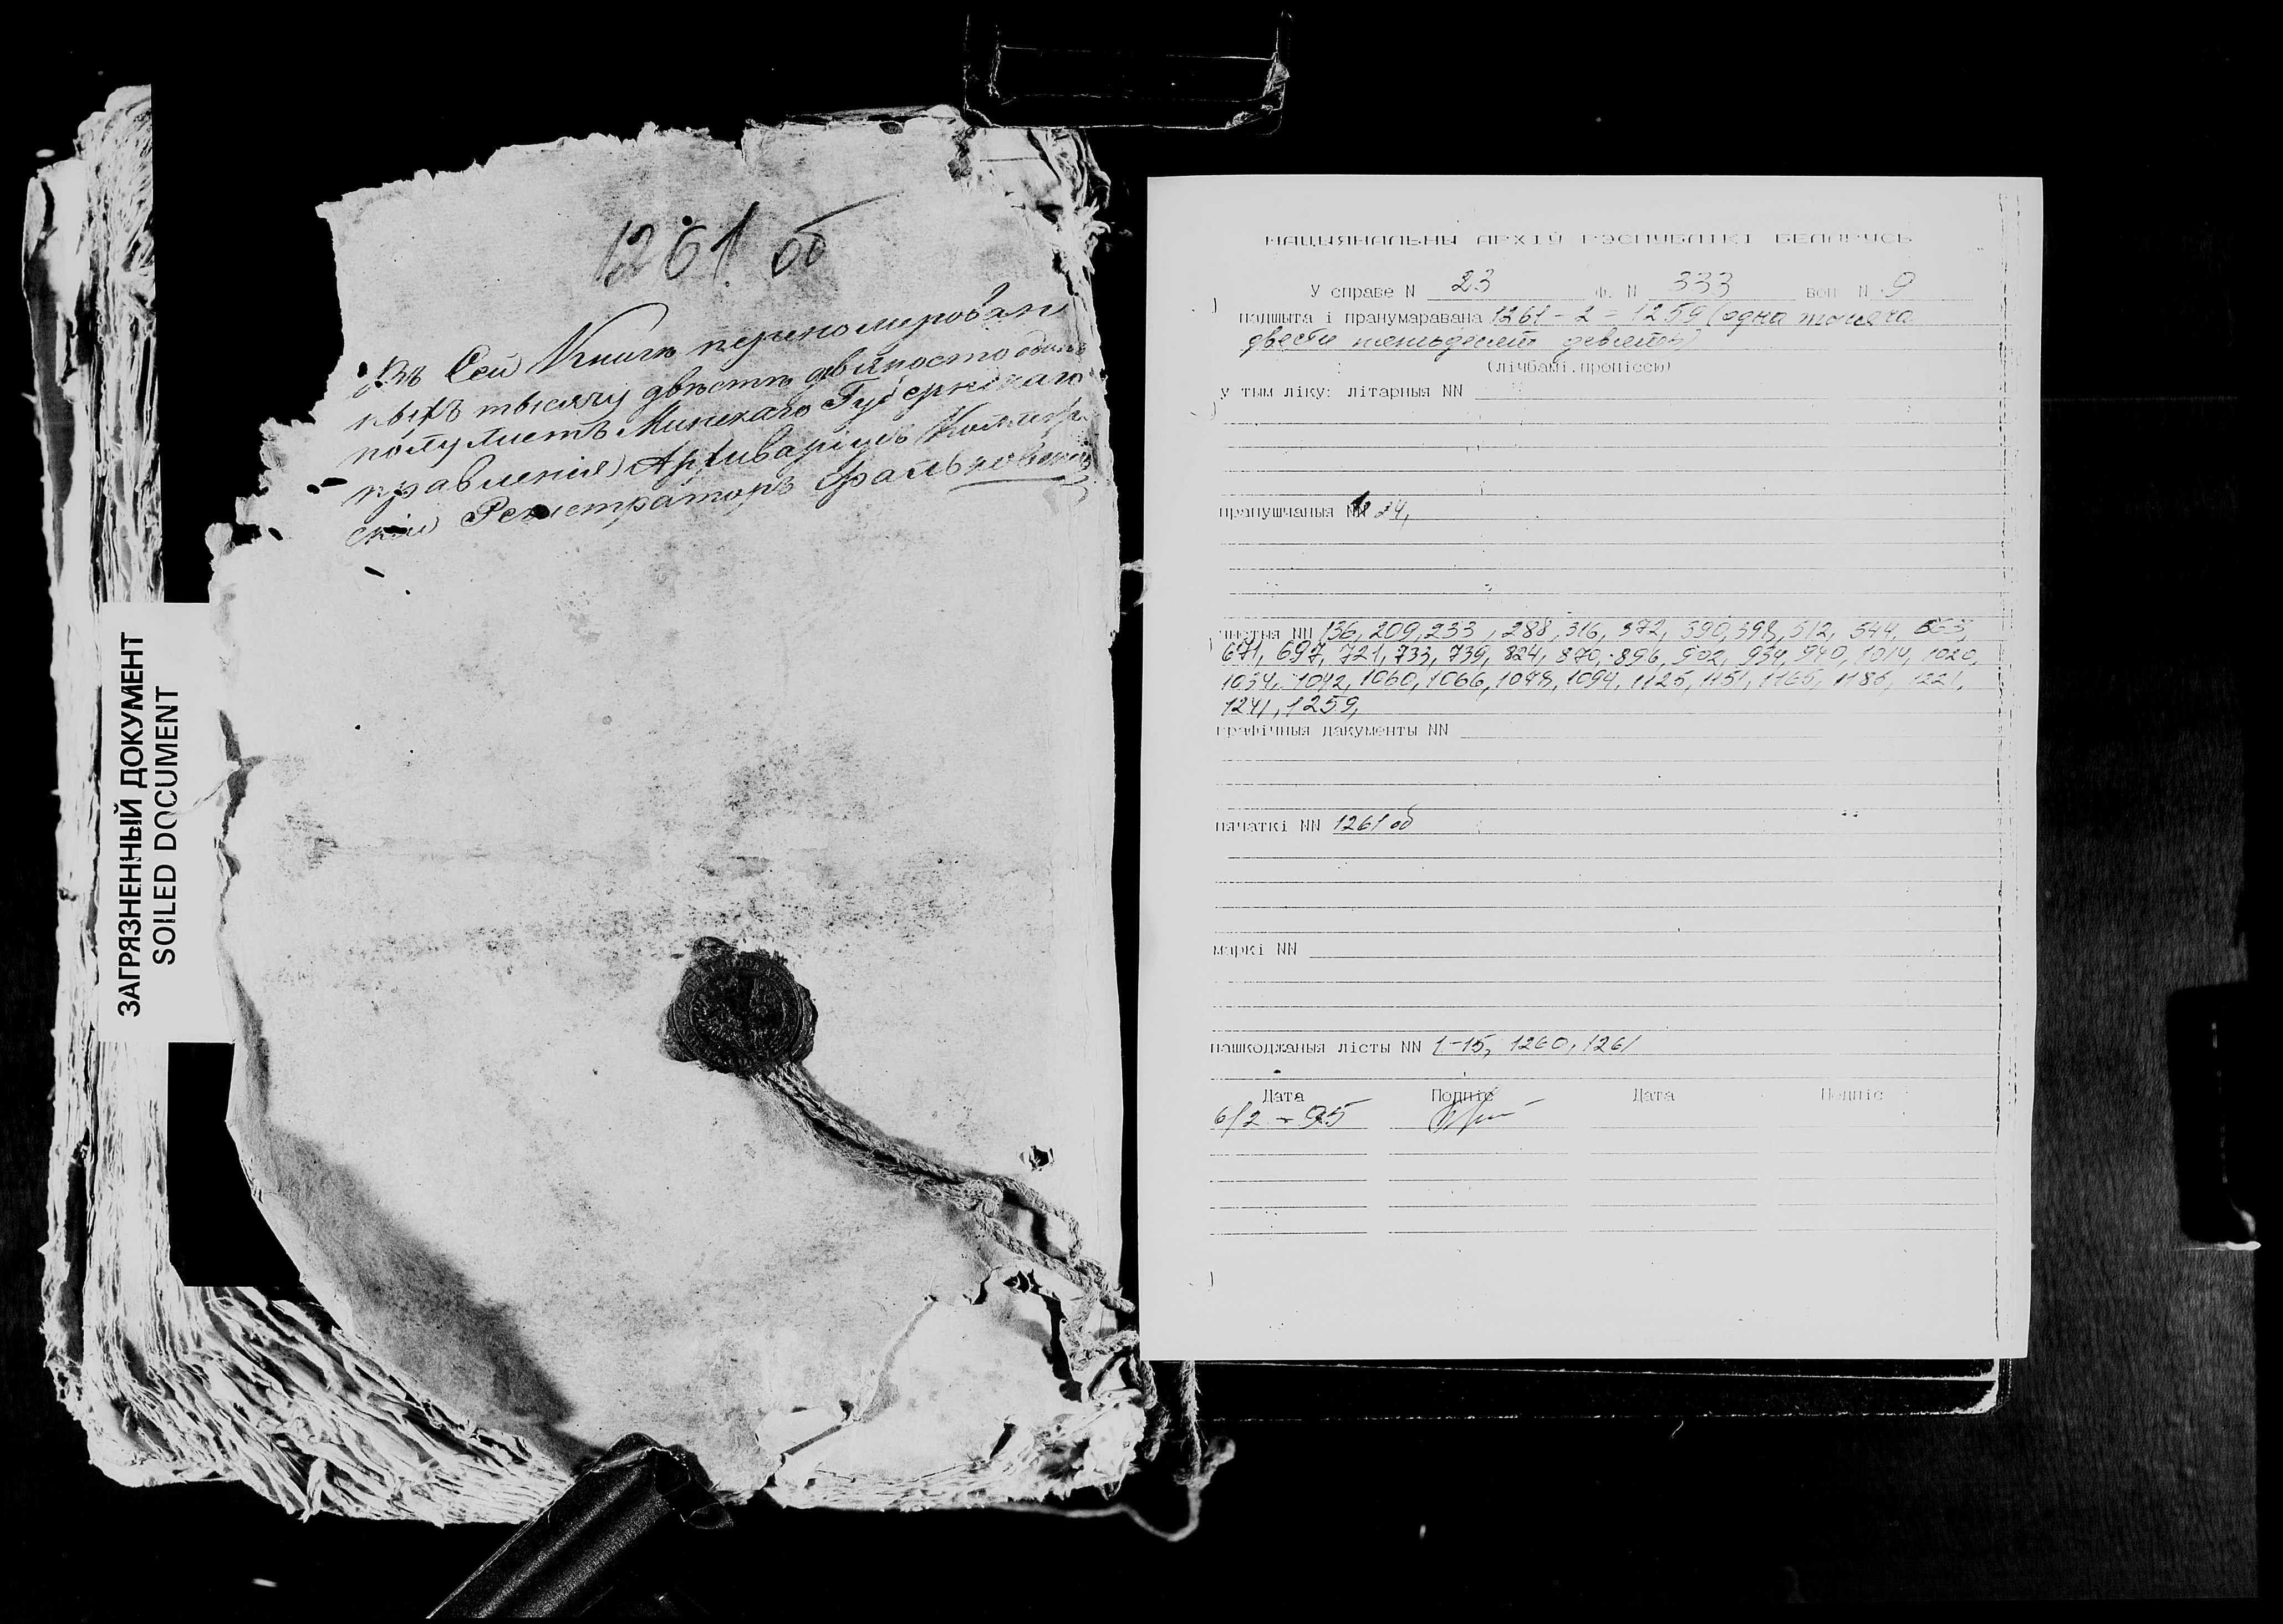 1261 об
Въ Сей Книгѣ перенумерован
ныхъ тысячу двѣсти девяносто одинъ
полулистъ Минскаго Губернскаго
правленія Архиваріусъ Коллеж
скій Регистраторъ Фальковскій
ЗАГРЯЗНЕННЫЙ ДОКУМЕНТ
SOILED DOCUMENT
НАЦЫЯНАЛЬНЫ АРХІЎ РЭСПУБЛІКІ БЕЛАРУСЬ
У справе N 23 ф. N 333 воп N 9
падшыта і пранумаравана 1261 - 2 = 1259 (одна тысяча
двести пятьдесят девять)
(лічбамі, пропіссю)
у тым ліку: літарныя NN
прапушчаныя NN 24,
чистыя NN 136, 209, 233, 288, 316, 372, 390, 398, 512, 544,
671, 697, 721, 733, 739, 824, 870, 896, 902, 934, 940, 1014, 1020,
1034, 1042, 1060, 1066, 1078, 1094, 1125, 1151, 1165, 1185, 1221,
1241, 1259,
графічныя дакументы NN
пячаткі NN 1261 об
маркі NN
пашкоджаныя лісты NN 1-15, 1260, 1261
Дата Подпіс Дата Подпіс
6/2 - 95